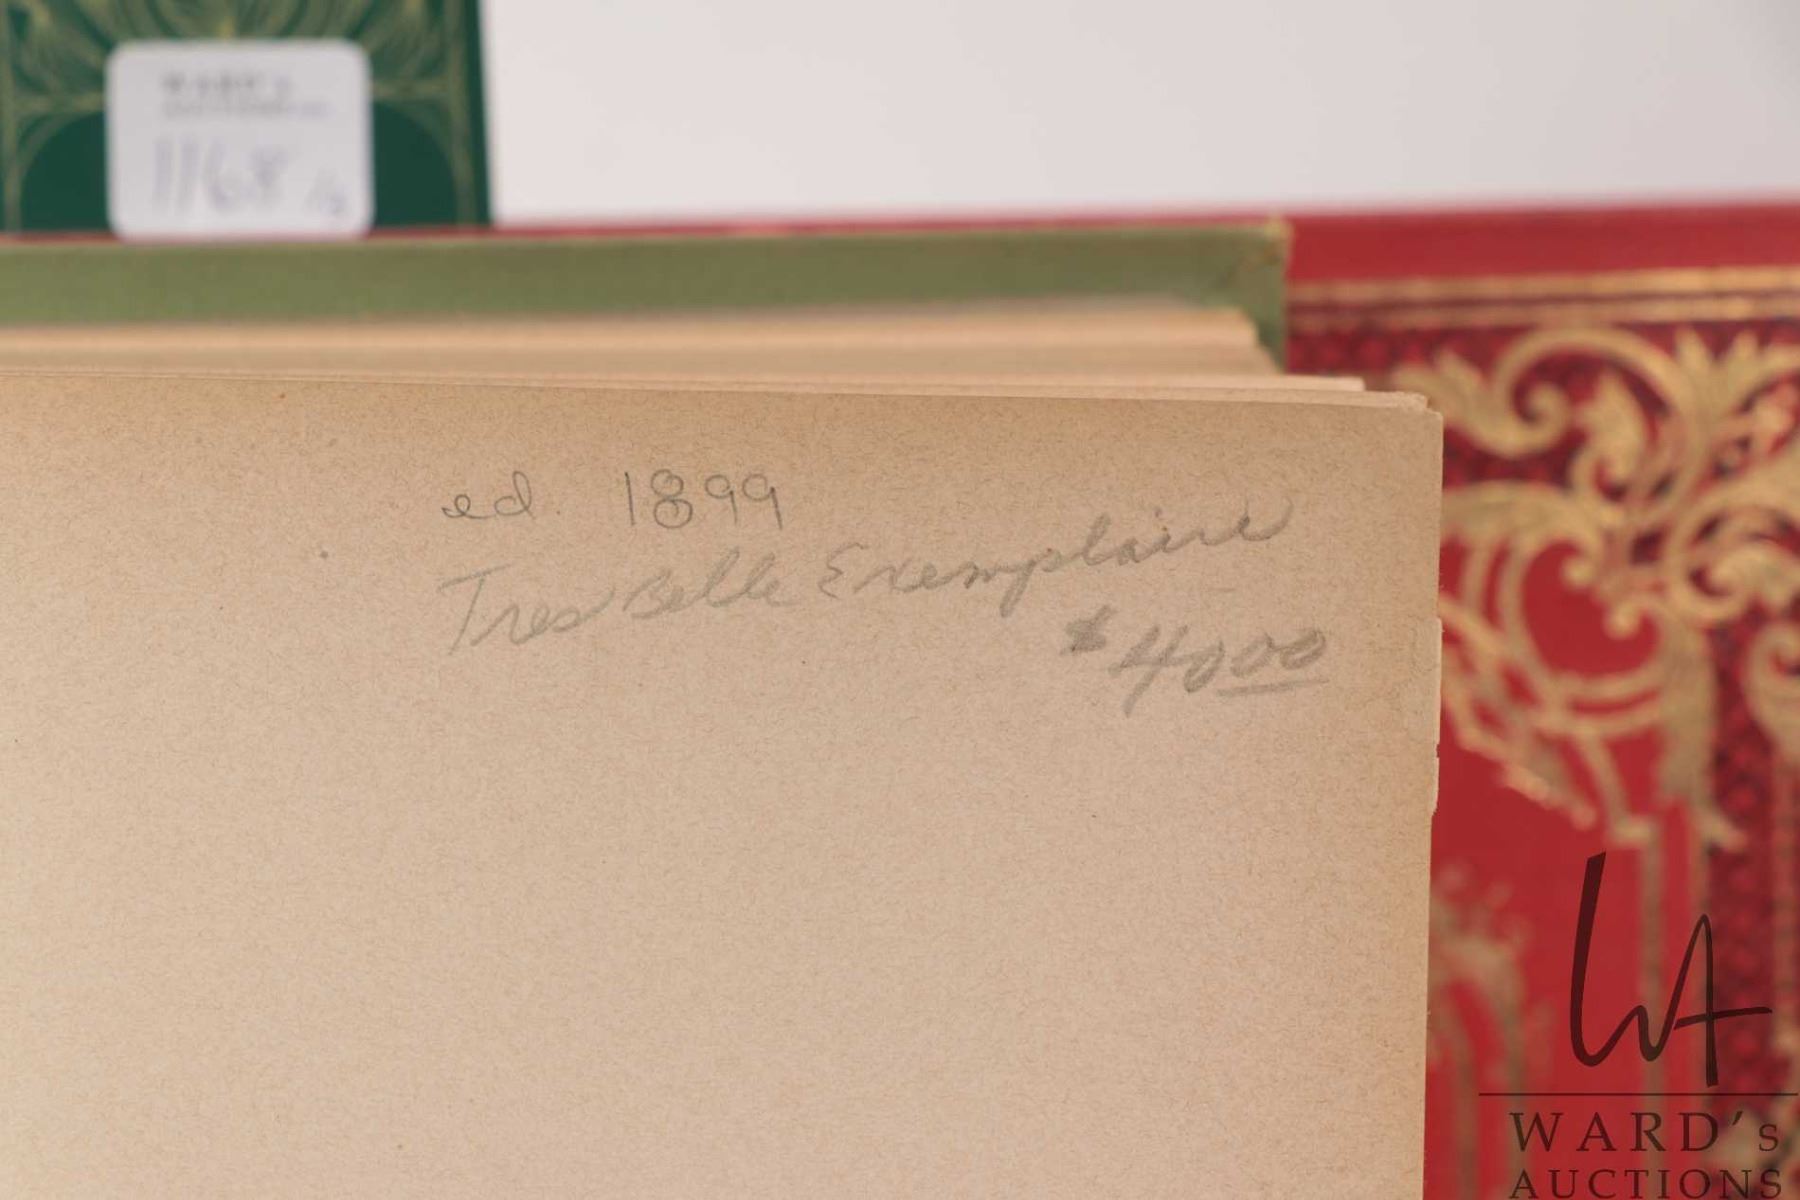 WARD's
1168
ed. 1899
Tres Belle Exemplaire
$4000
WARD's
AUCTIONS